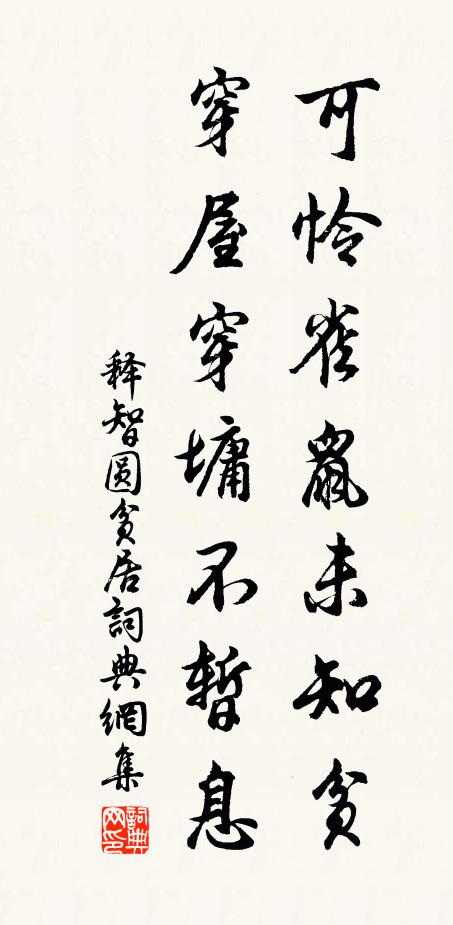 可怜雀鼠未知贫
穿屋穿墉不暂息
释智圆贫居詞典網集
詞典网印